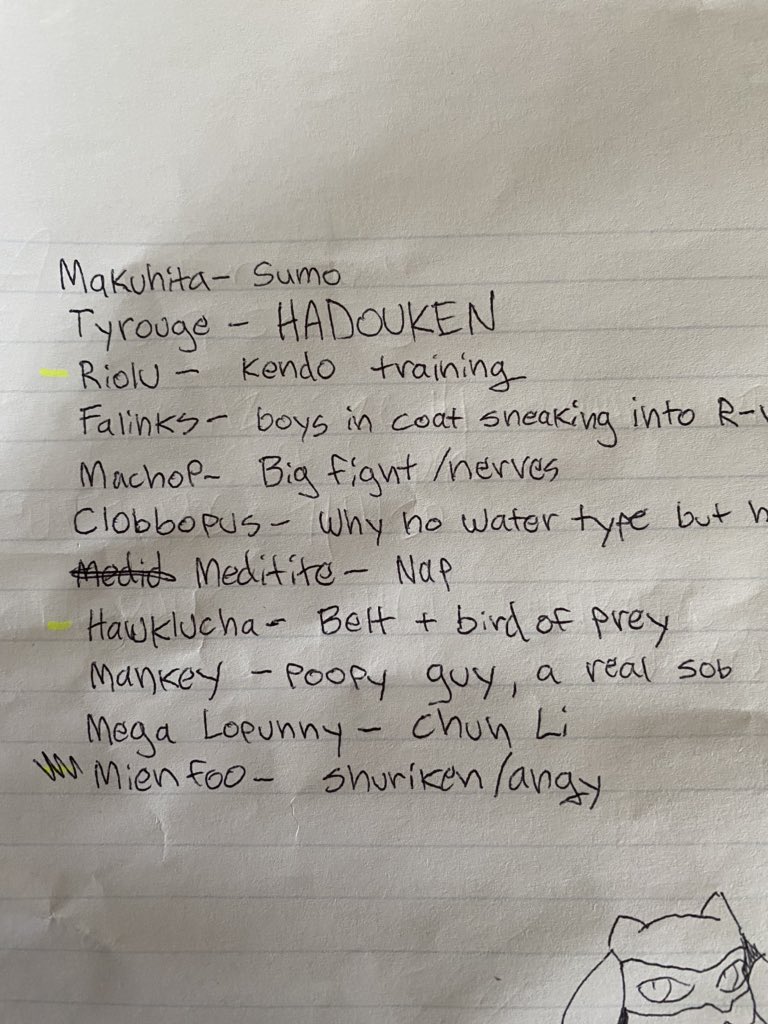 Makuhita- Sumo
Tyrouge - HADOUKEN
Riolu - Kendo training
Falinks- boys in coat sneaking into R-
Machop- Big fight/nerves
Clobbopus- Why no water type but
Medid Meditite- Nap
Hawklucha- Belt + bird of prey
Mankey - poopy guy, a real sob
Mega Lopunny- Chun Li
Mienfoo- shuriken/angy